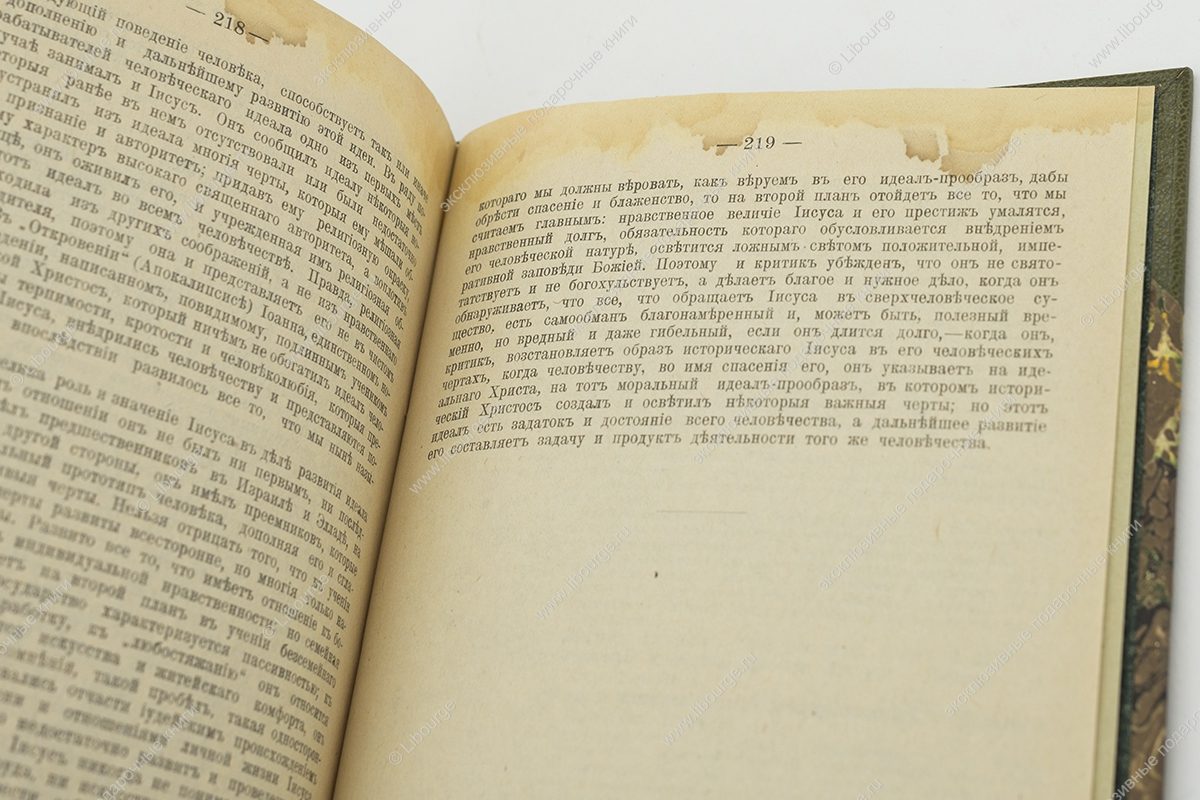 — 218 —
поведеніе человѣка, способствуетъ такъ или иначе
дополненію и дальнѣйшему развитію этой идеи. Въ ряду
человѣческаго идеала одно изъ первыхъ мѣстъ
занималъ и Іисусъ. Онъ сообщилъ идеалу нѣкоторыя
ранѣе въ немъ отсутствовали или были недостаточно
устранилъ изъ идеала многія черты, которыя ему мѣшали
признаніе и авторитетъ; придавъ ему религіозную окраску,
характеръ высокаго священнаго авторитета, а воплотивъ
онъ оживилъ его, и учрежденная имъ религіозная
идеалъ во всемъ человѣчествѣ. Правда, религіозная
изъ другихъ соображеній, а не изъ нравственнаго
поэтому она и представляетъ его не въ чистомъ
„Откровеніи“ (Апокалипсисѣ) Іоанна, единственномъ
написанномъ, повидимому, подлиннымъ ученикомъ
Христосъ, который ничѣмъ не обогатилъ идеалъ
терпимости, кротости и человѣколюбія, которыя
Іисуса, внѣдрились человѣчеству и представляются
впослѣдствіи развилось все то, что мы нынѣ
роль и значеніе Іисуса въ дѣлѣ развитія идеала
отношеніи онъ не былъ ни первымъ, ни
предшественниковъ въ Израилѣ и Элладѣ, на
другой стороны, онъ имѣлъ преемниковъ, которые
прототипъ человѣка, дополняя его и
черты. Нельзя отрицать того, что въ ученіи
развиты всесторонне, но многія только
Развито все то, что имѣетъ отношеніе къ
индивидуальной нравственности; но семейная
на второй планъ въ ученіи безсемейнаго
государство характеризуется пассивностью; къ
къ „любостяжанію“ онъ относится
искусства и житейскаго комфорта, онъ
такой пробѣлъ, такая
отчасти іудейскимъ происхожденіемъ
и отношеніями личной жизни Іисуса
недостаточно развитъ и
Іисусъ никогда не
— 219 —
котораго мы должны вѣровать, какъ вѣруемъ въ его идеалъ-прообразъ, дабы
обрѣсти спасеніе и блаженство, то на второй планъ отойдетъ все то, что мы
считаемъ главнымъ: нравственное величіе Іисуса и его престижъ умалятся,
нравственный долгъ, обязательность котораго обусловливается внѣдреніемъ
его человѣческой натурѣ, освѣтится ложнымъ свѣтомъ положительной, импе-
ративной заповѣди Божіей. Поэтому и критикъ убѣжденъ, что онъ не свято-
татствуетъ и не богохульствуетъ, а дѣлаетъ благое и нужное дѣло, когда онъ
обнаруживаетъ, что все, что обращаетъ Іисуса въ сверхчеловѣческое су-
щество, есть самообманъ благонамѣренный и, можетъ быть, полезный вре-
менно, но вредный и даже гибельный, если онъ длится долго,—когда онъ,
критикъ, возстановляетъ образъ историческаго Іисуса въ его человѣческихъ
чертахъ, когда человѣчеству, во имя спасенія его, онъ указываетъ на иде-
альнаго Христа, на тотъ моральный идеалъ-прообразъ, въ которомъ истори-
ческій Христосъ создалъ и освѣтилъ нѣкоторыя важныя черты; но этотъ
идеалъ есть задатокъ и достояніе всего человѣчества, а дальнѣйшее развитіе
его составляетъ задачу и продуктъ дѣятельности того же человѣчества.